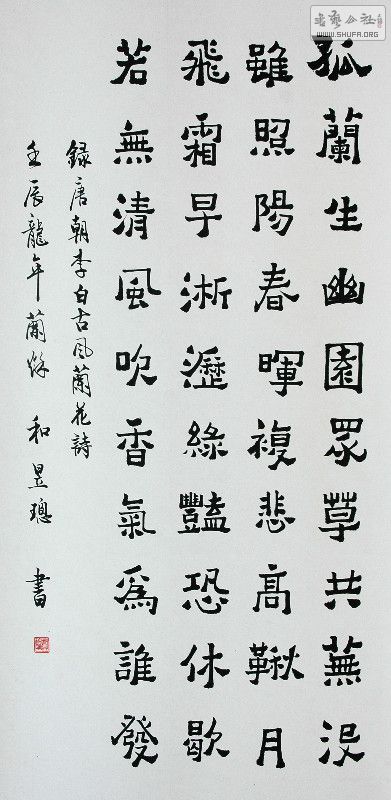 孤蘭生幽園眾草共蕪沒
雖照陽春暉複悲高鞦月
飛霜早淅瀝綠豔恐休歇
若無清風吹香氣為誰發
録唐朝李白古风蘭花詩
壬辰龍年蘭 和昱璁 書
書藝公社
WWW.SHUFA.ORG